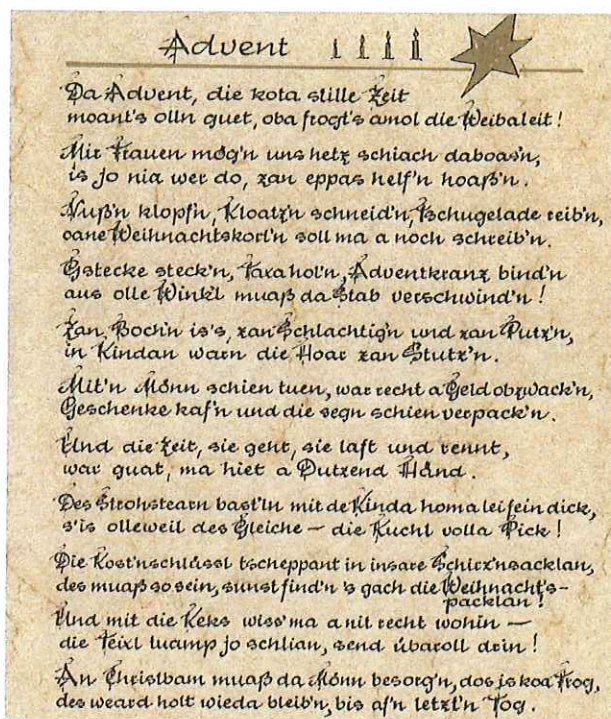 Advent
Da Advent, die kota stille Zeit
moant's olln guet, oba frogt's amol die Weibaleit!
Mir Frauen mög'n uns hetz schiach daboas'n,
is jo nia wer do, zan eppas helf'n hoaß'n.
Nuß'n klopf'n, Kloatz'n schneid'n, Tschugelade reib'n,
oane Weihnachtskort'n soll ma a noch schreib'n.
Gstecke steck'n, Taxa hol'n, Adventkranz bind'n
aus olle Wink'l muaß da Stab verschwind'n!
Zan Boch'n is's, zan Schlachtign und zan Putz'n,
in Kindan warn die Hoar zan Stutz'n.
Mit'n Månn schien tuen, war recht a Geld obzwack'n,
Geschenke kaf'n und die segn schien verpack'n.
Und die Zeit, sie geht, sie laft und rennt,
war guat, ma hiet a Dutzend Händ.
Des Strohstearn bast'ln mit de Kinda homa leifein dick,
s'is olleweil des Gleiche – die Kuchl volla Pick!
Die Kost'nschlüssl tscheppant in insare Schirz'nsacklan,
des muaß so sein, sunst find'n 's gach die Weihnacht's-
packlan!
Und mit die Keks wiss'ma a nit recht wohin –
die Teixl luamp jo schlian, send überoll drin!
An Christbam muaß da Månn besorg'n, dos is koa Frog,
des weard holt wieda bleib'n, bis af'n letzt'n Tog.